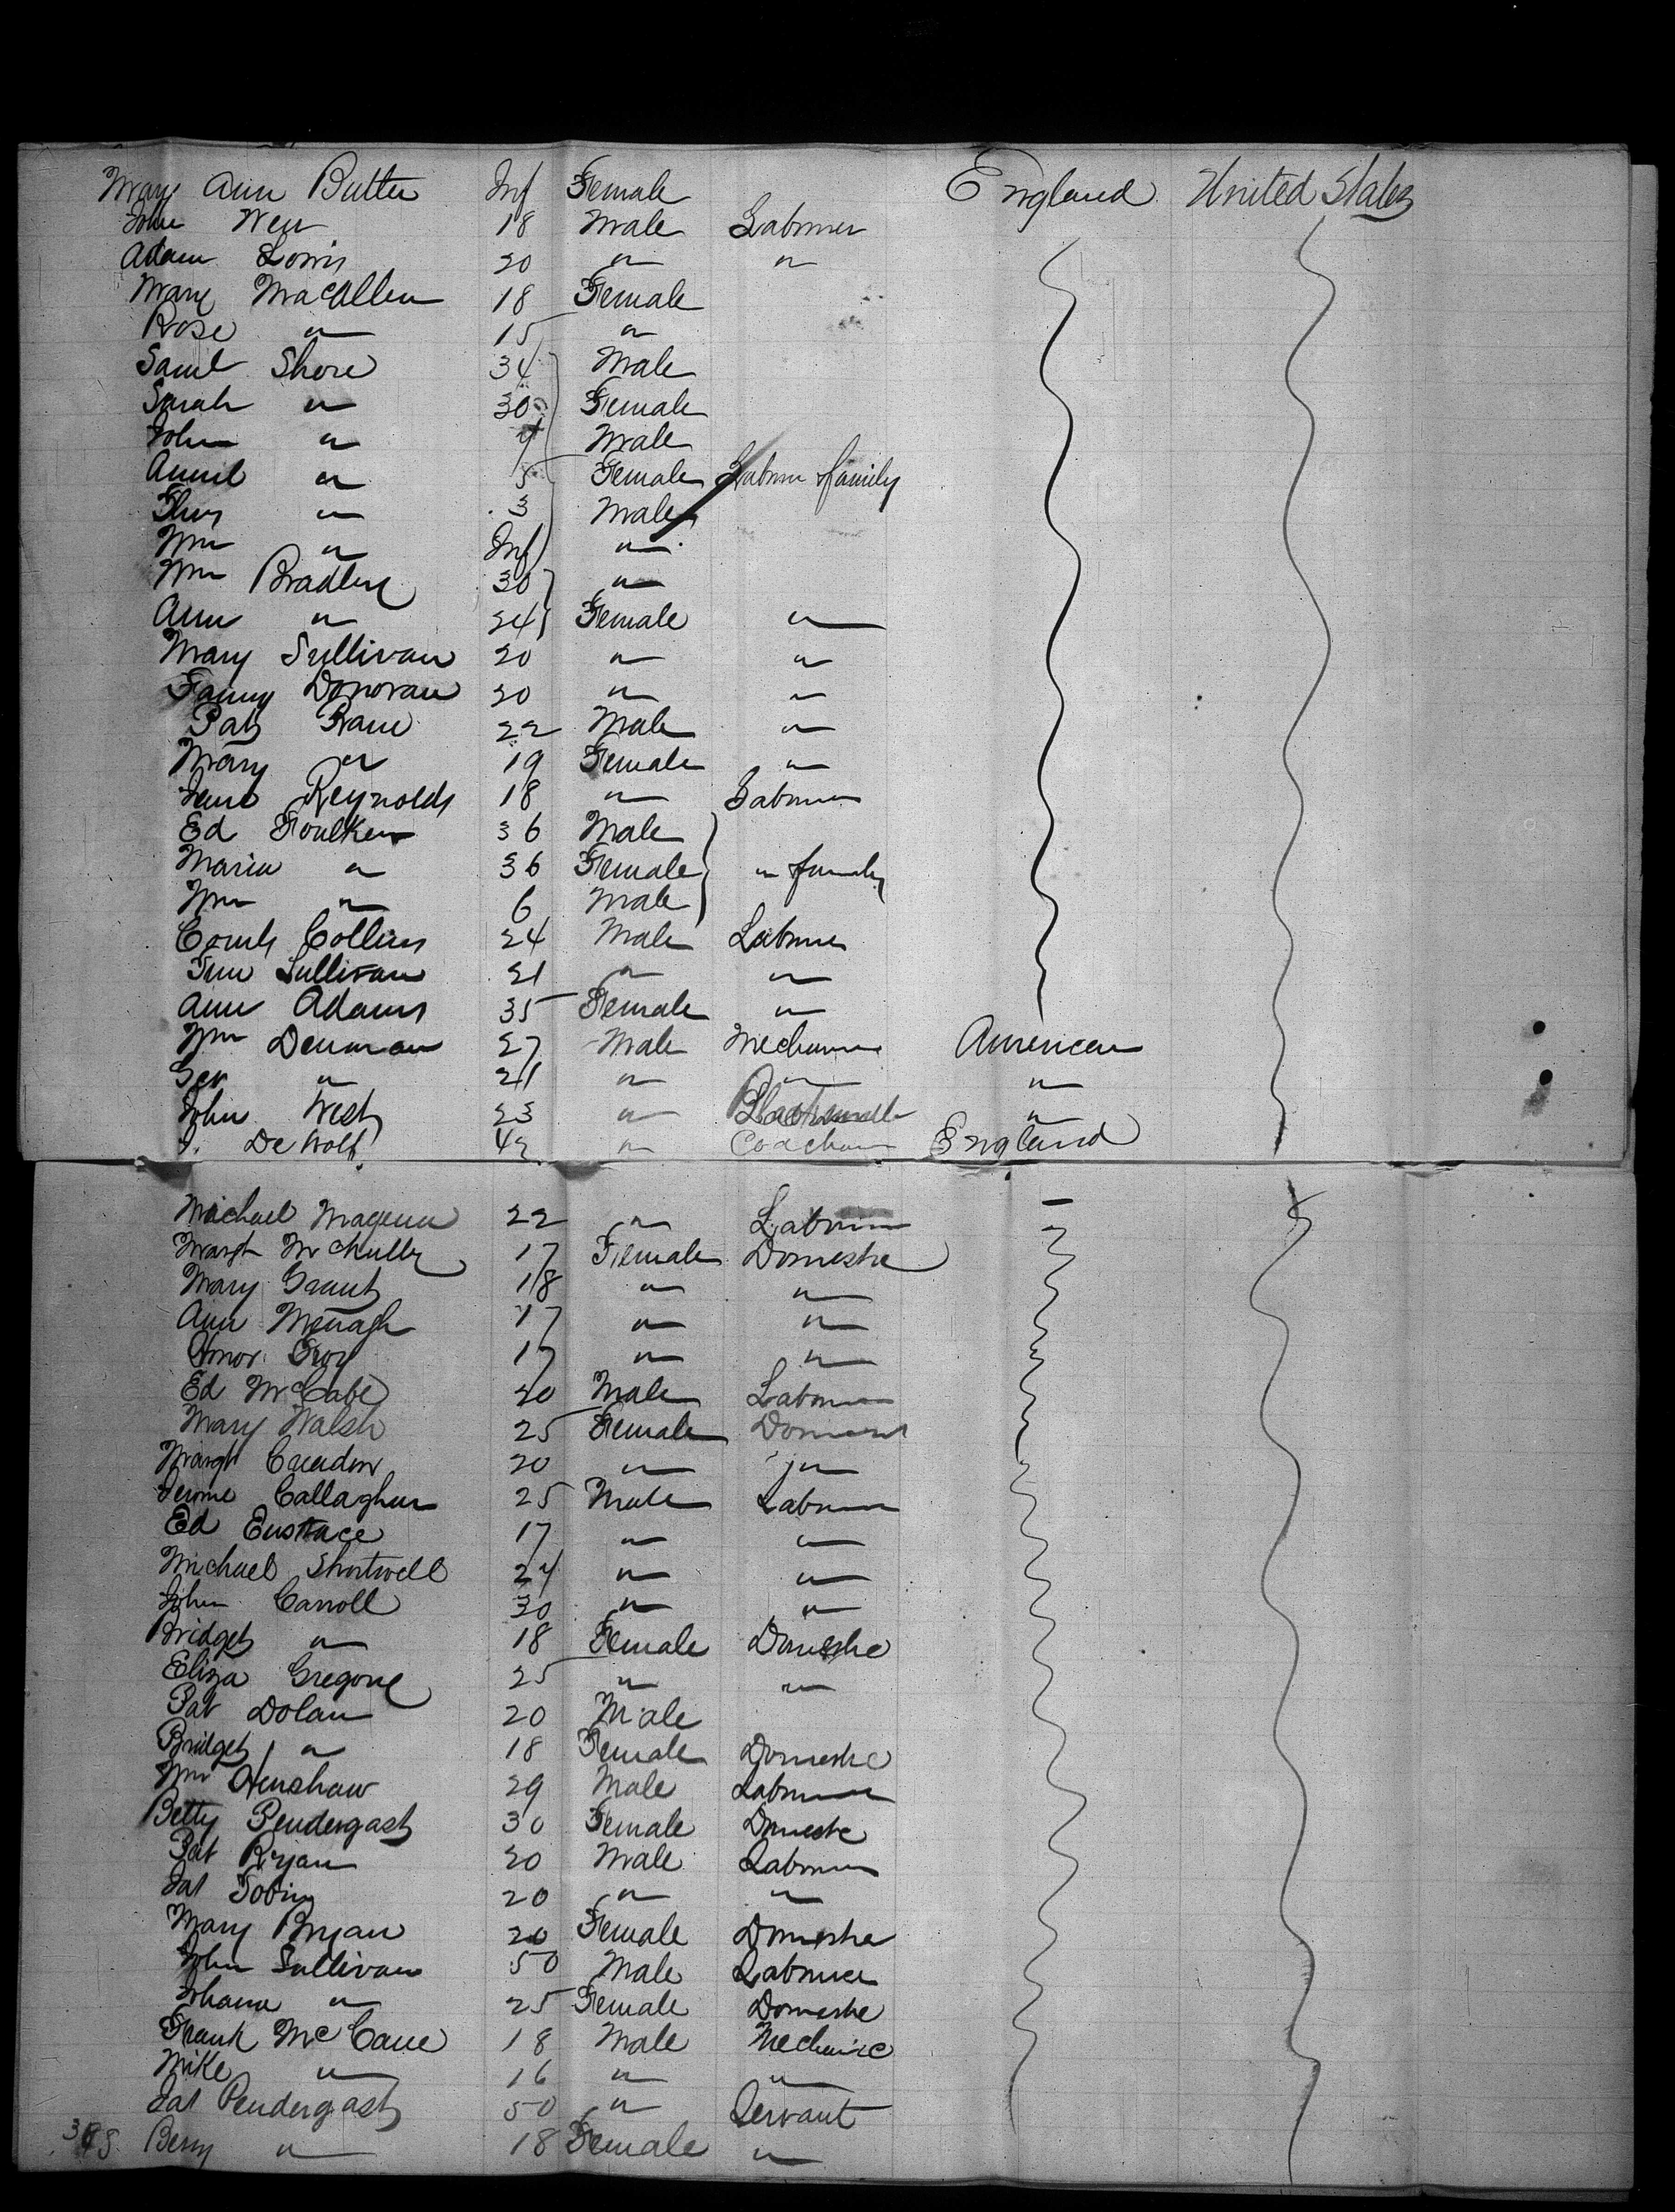 Mary Ann Butler Inf Female England United States
John Weir 18 Male Labourer
Adam Lorris 20 " "
Mary MacAllen 18 Female
Rose " 15 "
Saml Shore 34 Male
Sarah " 30 Female
John " 7 Male
Annie " 5 Female Labourer family
Thos " 3 Male
Wm " Inf "
Wm Bradley 30 "
Ann " 24 Female "
Mary Sullivan 20 " "
Fanny Donovan 20 " "
Pat 22 Male "
Mary " 19 Female "
Jane Reynolds 18 " Labourer
Ed Foulkes 36 Male
Maria " 36 Female " family
Wm " 6 Male
Corns Collins 24 Male Labourer
Tim Sullivan 21 " "
Ann Adams 35 Female "
Wm Denman 27 Male Mechanic American
Geo " 21 " " "
John West 23 " Blacksmith "
J. De Wolf 42 " Coachman England
Michael Magenn 22 " Labourer
Margt 17 Female Domestic
Mary Grant 18 " "
Ann Menagh 17 " "
Troy 17 " "
Ed McCabe 20 Male Labourer
Mary Walsh 25 Female Domestic
Margt Creadon 20 " "
Jerome Callaghan 25 Male Labourer
Ed Eustace 17 " "
Michael Shortwell 24 " "
John Carroll 30 " "
Bridget " 18 Female Domestic
Eliza Gregory 25 " "
Pat Dolan 20 Male
Bridget " 18 Female Domestic
Wm Henshaw 29 Male Labourer
Betty Pendergast 30 Female Domestic
Pat Ryan 20 Male Labourer
Jas Tobin 20 " "
Mary Bryan 20 Female Domestic
John Sullivan 50 Male Labourer
Johana " 25 Female Domestic
Frank McCane 18 Male Mechanic
Mike " 16 " "
Jas Pendergast 50 " Servant
Bessy " 18 Female "